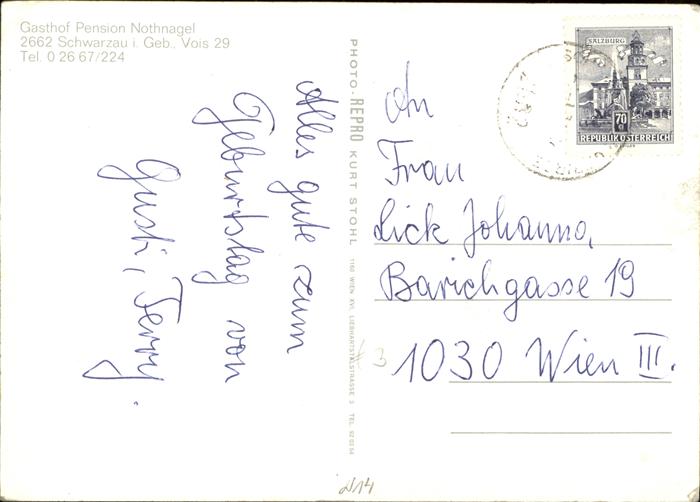 Gasthof Pension Nothnagel
2662 Schwarzau i. Geb., Vois 29
Tel. 0 26 67/224
Alles gute zum
Geburtstag von
Gusti, Ferry.
PHOTO-REPRO KURT STOHL 1160 WIEN XVI, LIEBHARTSTALSTRASSE 3 TEL.
SALZBURG
70 g
REPUBLIK ÖSTERREICH
An
Frau
Lick Johanna,
Barichgasse 19
3 1030 Wien III.